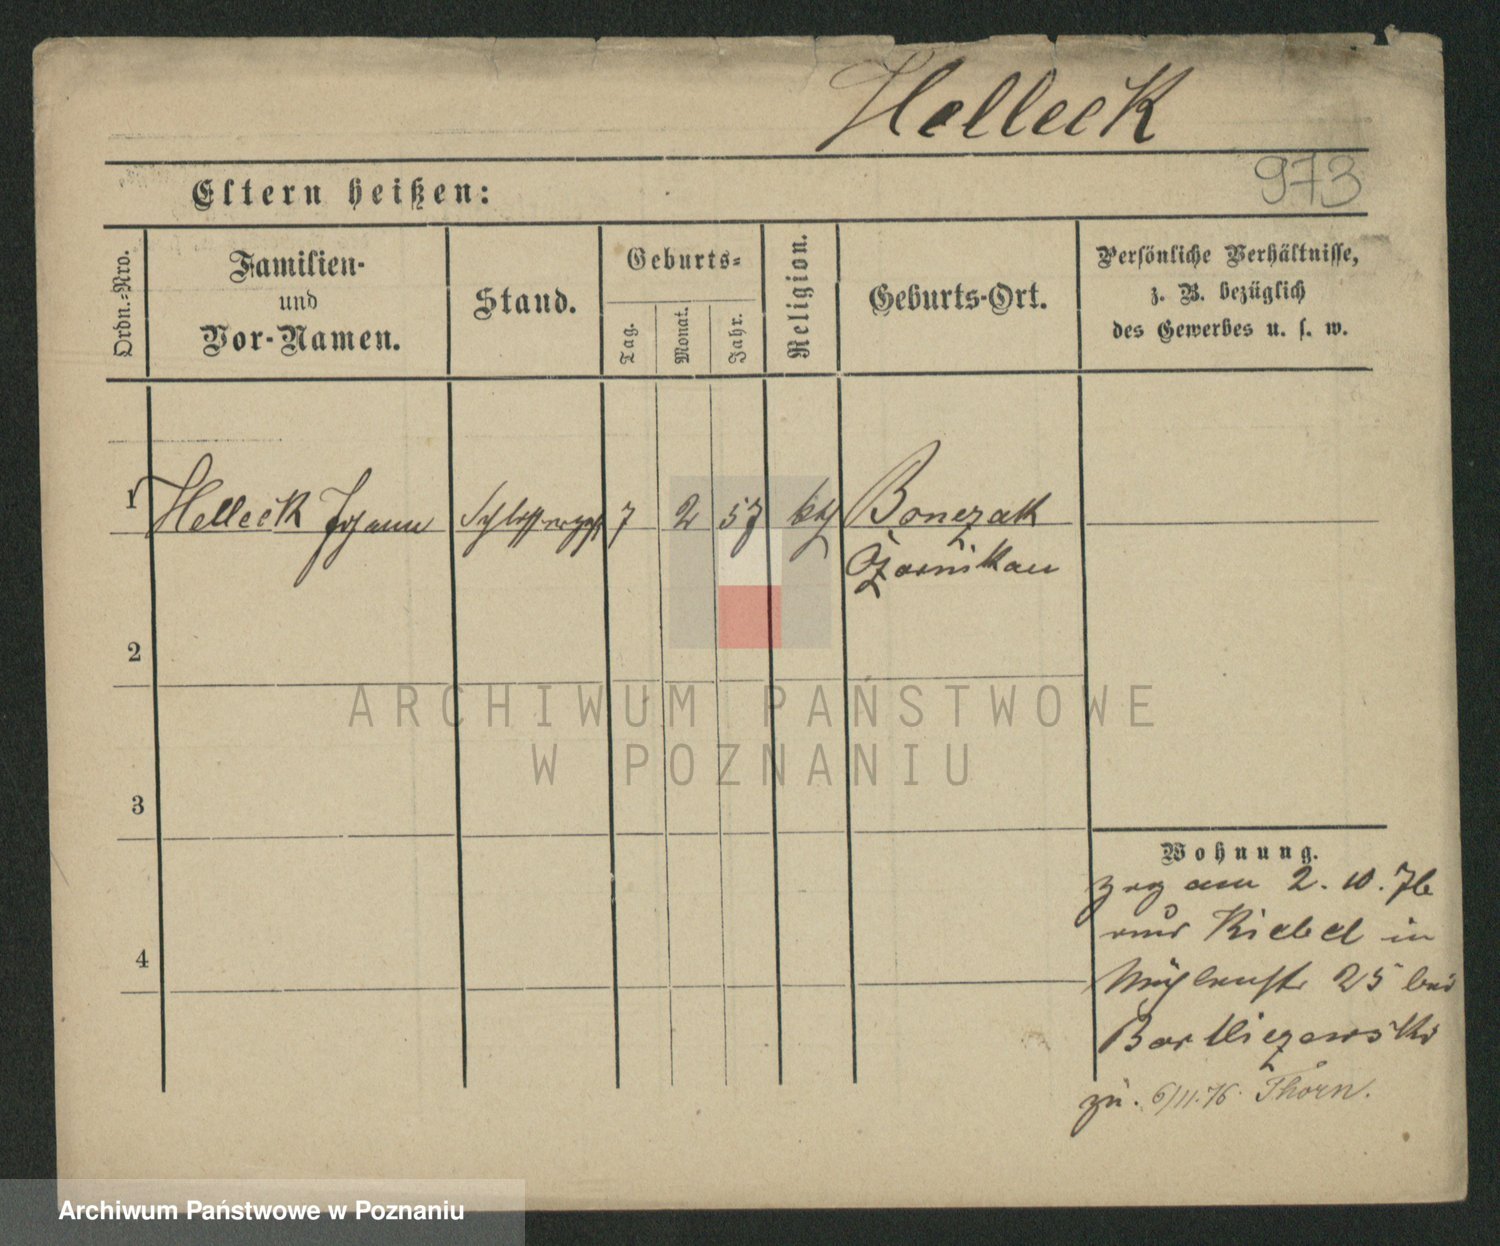 Helleck
973
Eltern heißen:
Ordn.-Nro.
Familien-
und
Vor-Namen.
Stand.
Geburts-
Tag.
Monat.
Jahr.
Religion.
Geburts-Ort.
Persönliche Verhältnisse,
z. B. bezüglich
des Gewerbes u. s. w.
1 Helleck Johann 7 2 57 kth Bonczak
Czarnikau
2
3
4
Wohnung.
zog am 2. 10. 76
aus in
Mühlenstr 25 bei
zu. 6/11.76. Thorn.
ARCHIWUM PAŃSTWOWE
W POZNANIU
Archiwum Państwowe w Poznaniu